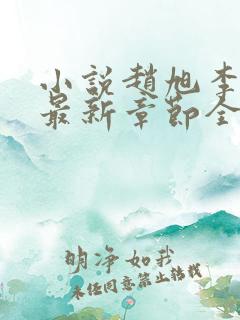 小説趙旭李
最新章節全
明净如我
未经同意禁止转载